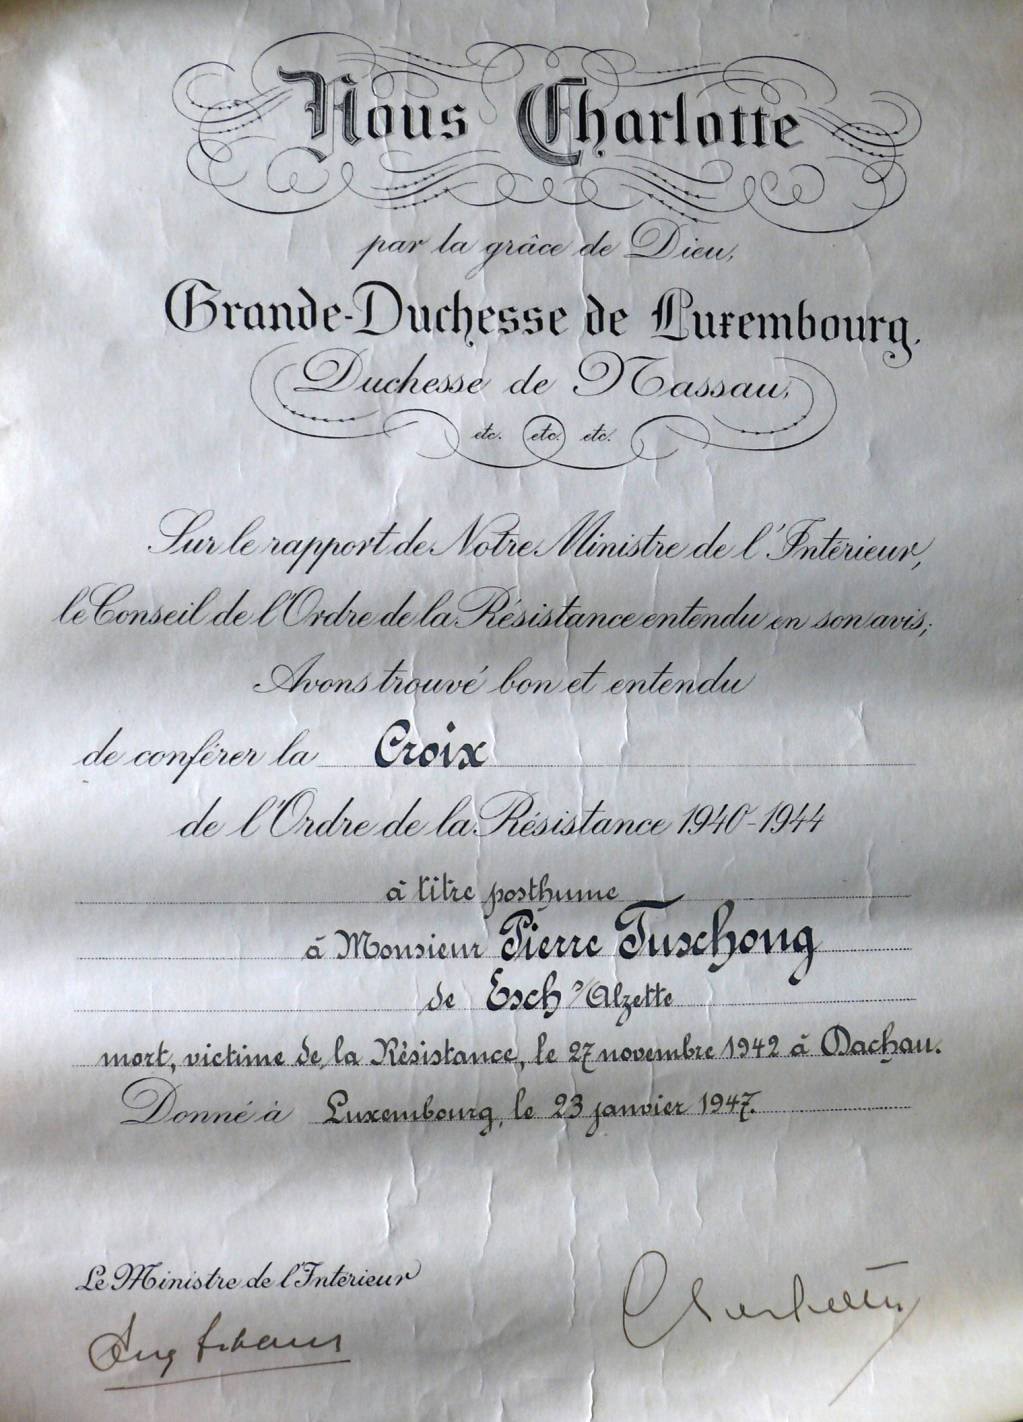 Nous Charlotte
par la grâce de Dieu,
Grande-Duchesse de Luxembourg,
Duchesse de Nassau,
etc. etc. etc.
Sur le rapport de Notre Ministre de l'Intérieur,
le Conseil de l'Ordre de la Résistance entendu en son avis;
Avons trouvé bon et entendu
de conférer la Croix
de l'Ordre de la Résistance 1940-1944
à titre posthume
à Monsieur Pierre Tuschong
de Esch s/Alzette
mort, victime de la Résistance, le 27 novembre 1942 à Dachau.
Donné à Luxembourg, le 23 janvier 1947.
Le Ministre de l'Intérieur
Charlotte